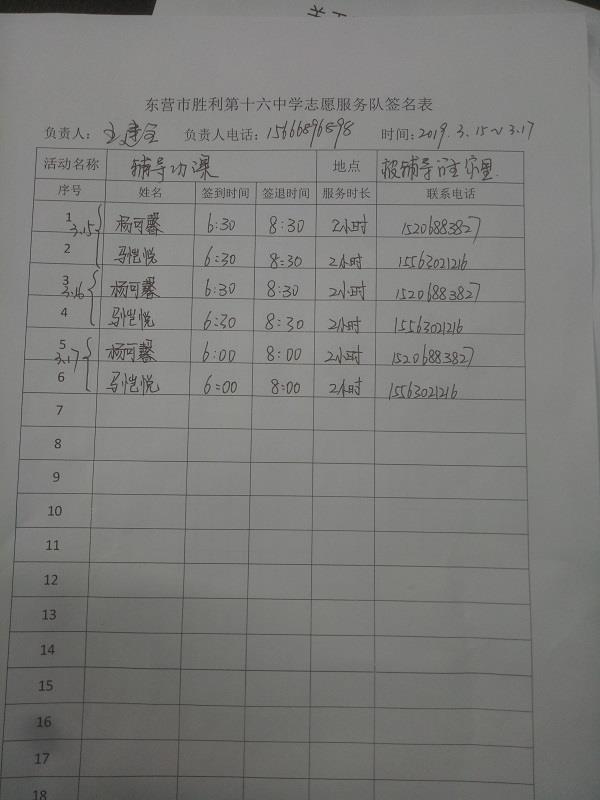 东营市胜利第十六中学志愿服务队签名表
负责人： 负责人电话：15666896898 时间：2019.3.15~3.17
活动名称 辅导功课 地点 被辅导 家里
序号 姓名 签到时间 签退时间 服务时长 联系电话
3.15
1 杨可馨 6:30 8:30 2小时 15206883827
2 马恺悦 6:30 8:30 2小时 15563021216
3.16
3 杨可馨 6:30 8:30 2小时 15206883827
4 马恺悦 6:30 8:30 2小时 15563021216
3.17
5 杨可馨 6:00 8:00 2小时 15206883827
6 马恺悦 6:00 8:00 2小时 15563021216
7
8
9
10
11
12
13
14
15
16
17
18